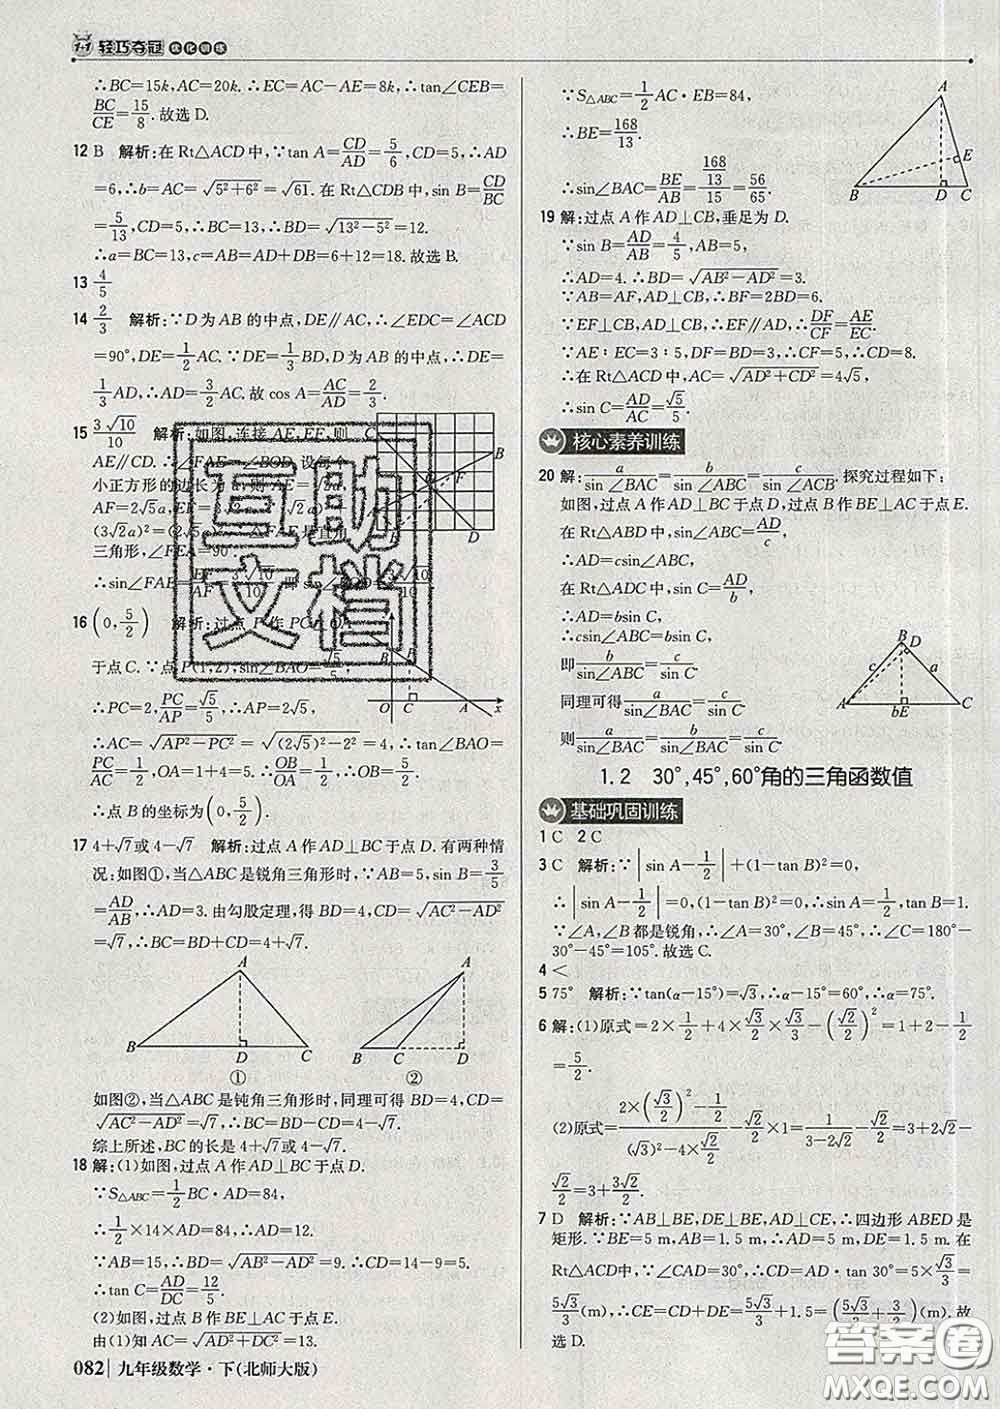 1+1 轻巧夺冠 优化训练
∴BC=15k,AC=20k.∴EC=AC-AE=8k,∴tan∠CEB=
BC/CE=15/8.故选 D.
12 B 解析:在 Rt△ACD 中,∵tan A=CD/AD=5/6,CD=5,∴AD
=6,∴b=AC=√(5²+6²)=√61. 在 Rt△CDB 中,sin B=CD/BC
=5/13,CD=5,∴BC=13,∴BD=√(13²-5²)=12.
∴a=BC=13,c=AB=AD+DB=6+12=18.故选 B.
13 4/5
14 2/3 解析:∵D为AB的中点,DE∥AC,∴∠EDC=∠ACD
=90°,DE=1/2AC.∵DE=1/3BD,D为AB的中点,∴DE=
1/3AD,∴AD=3/2AC.故 cos A=AC/AD=2/3.
15 3√10/10 解析:如图,连接AE,EF,则
AE∥CD.
小正方形的边长为
AF=2√5a,
(3√2a)²=
三角形,∠FEA=90°.
∴sin∠FAE=EF/AF=3√10/10
16 (0,5/2) 解析:过点P作PC⊥OA
于点C.∵点P(1,2),sin∠BAO=√5/5,
∴PC=2,PC/AP=√5/5,∴AP=2√5,
∴AC=√(AP²-PC²)=√((2√5)²-2²)=4,∴tan∠BAO=
PC/AC=1/2,OA=1+4=5.∴OB/OA=1/2,∴OB=5/2.
∴点B的坐标为(0,5/2).
17 4+√7或4-√7 解析:过点A作AD⊥BC于点D.有两种情
况:如图①,当△ABC是锐角三角形时,∵AB=5,sin B=3/5
=AD/AB,∴AD=3.由勾股定理,得BD=4,CD=√(AC²-AD²)
=√7,∴BC=BD+CD=4+√7.
A B D C
①
A B C D
②
如图②,当△ABC是钝角三角形时,同理可得BD=4,CD=
√(AC²-AD²)=√7,∴BC=BD-CD=4-√7.
综上所述,BC的长是4+√7或4-√7.
18 解:(1)如图,过点A作AD⊥BC于点D.
∵S△ABC=1/2BC·AD=84,
∴1/2×14×AD=84,∴AD=12.
∵AB=15,∴BD=√(AB²-AD²)=9.∴CD=14-9=5.
∴tan C=AD/DC=12/5.
(2)如图,过点B作BE⊥AC于点E.
由(1)知AC=√(AD²+DC²)=13.
∵S△ABC=1/2AC·EB=84,
∴BE=168/13.
∴sin∠BAC=BE/AB=(168/13)/15=56/65.
A E B D C
19 解:过点A作AD⊥CB,垂足为D.
∵sin B=AD/AB=4/5,AB=5,
∴AD=4.∴BD=√(AB²-AD²)=3.
∵AB=AF,AD⊥CB,∴BF=2BD=6.
∵EF⊥CB,AD⊥CB,∴EF∥AD,∴DF/CF=AE/EC.
∵AE∶EC=3∶5,DF=BD=3,∴CF=5,∴CD=8.
∴在Rt△ADC中,AC=√(AD²+CD²)=4√5,
∴sin C=AD/AC=√5/5.
核心素养训练
20 解:a/sin∠BAC=b/sin∠ABC=c/sin∠ACB.探究过程如下:
如图,过点A作AD⊥BC于点D,过点B作BE⊥AC于点E.
在Rt△ABD中,sin∠ABC=AD/c,
∴AD=csin∠ABC,
在Rt△ADC中,sin C=AD/b,
∴AD=bsin C,
∴csin∠ABC=bsin C,
即b/sin∠ABC=c/sin C.
同理可得a/sin∠BAC=c/sin C,
则a/sin∠BAC=b/sin∠ABC=c/sin C.
B D c a A bE C
1.2 30°,45°,60°角的三角函数值
基础巩固训练
1 C 2 C
3 C 解析:∵|sin A-1/2|+(1-tan B)²=0,
∴|sin A-1/2|=0,(1-tan B)²=0,∴sin A=1/2,tan B=1.
∵∠A,∠B都是锐角,∴∠A=30°,∠B=45°,∴∠C=180°-
30°-45°=105°.故选C.
4 <
5 75° 解析:∵tan(α-15°)=√3,∴α-15°=60°,∴α=75°.
6 解:(1)原式=2×1/2+4×√3/2×√3/3-(√2/2)²=1+2-1/2
=5/2.
(2)原式=(2×(√3/2)²-1/2)/((√3)²-4×√2/2)-√2/2×1=1/(3-2√2)-√2/2=3+2√2-
√2/2=3+3√2/2.
7 D 解析:∵AB⊥BE,DE⊥BE,AD⊥CE,∴四边形ABED是
矩形.∵BE=5 m,AB=1.5 m,∴AD=5 m,DE=1.5 m.在
Rt△ACD中,∵∠CAD=30°,∴CD=AD·tan 30°=5×√3/3=
5√3/3(m),∴CE=CD+DE=5√3/3+1.5=(5√3/3+3/2)(m).故
选D.
082 九年级数学·下(北师大版)
互助
文档
答案圈
MXQE.COM